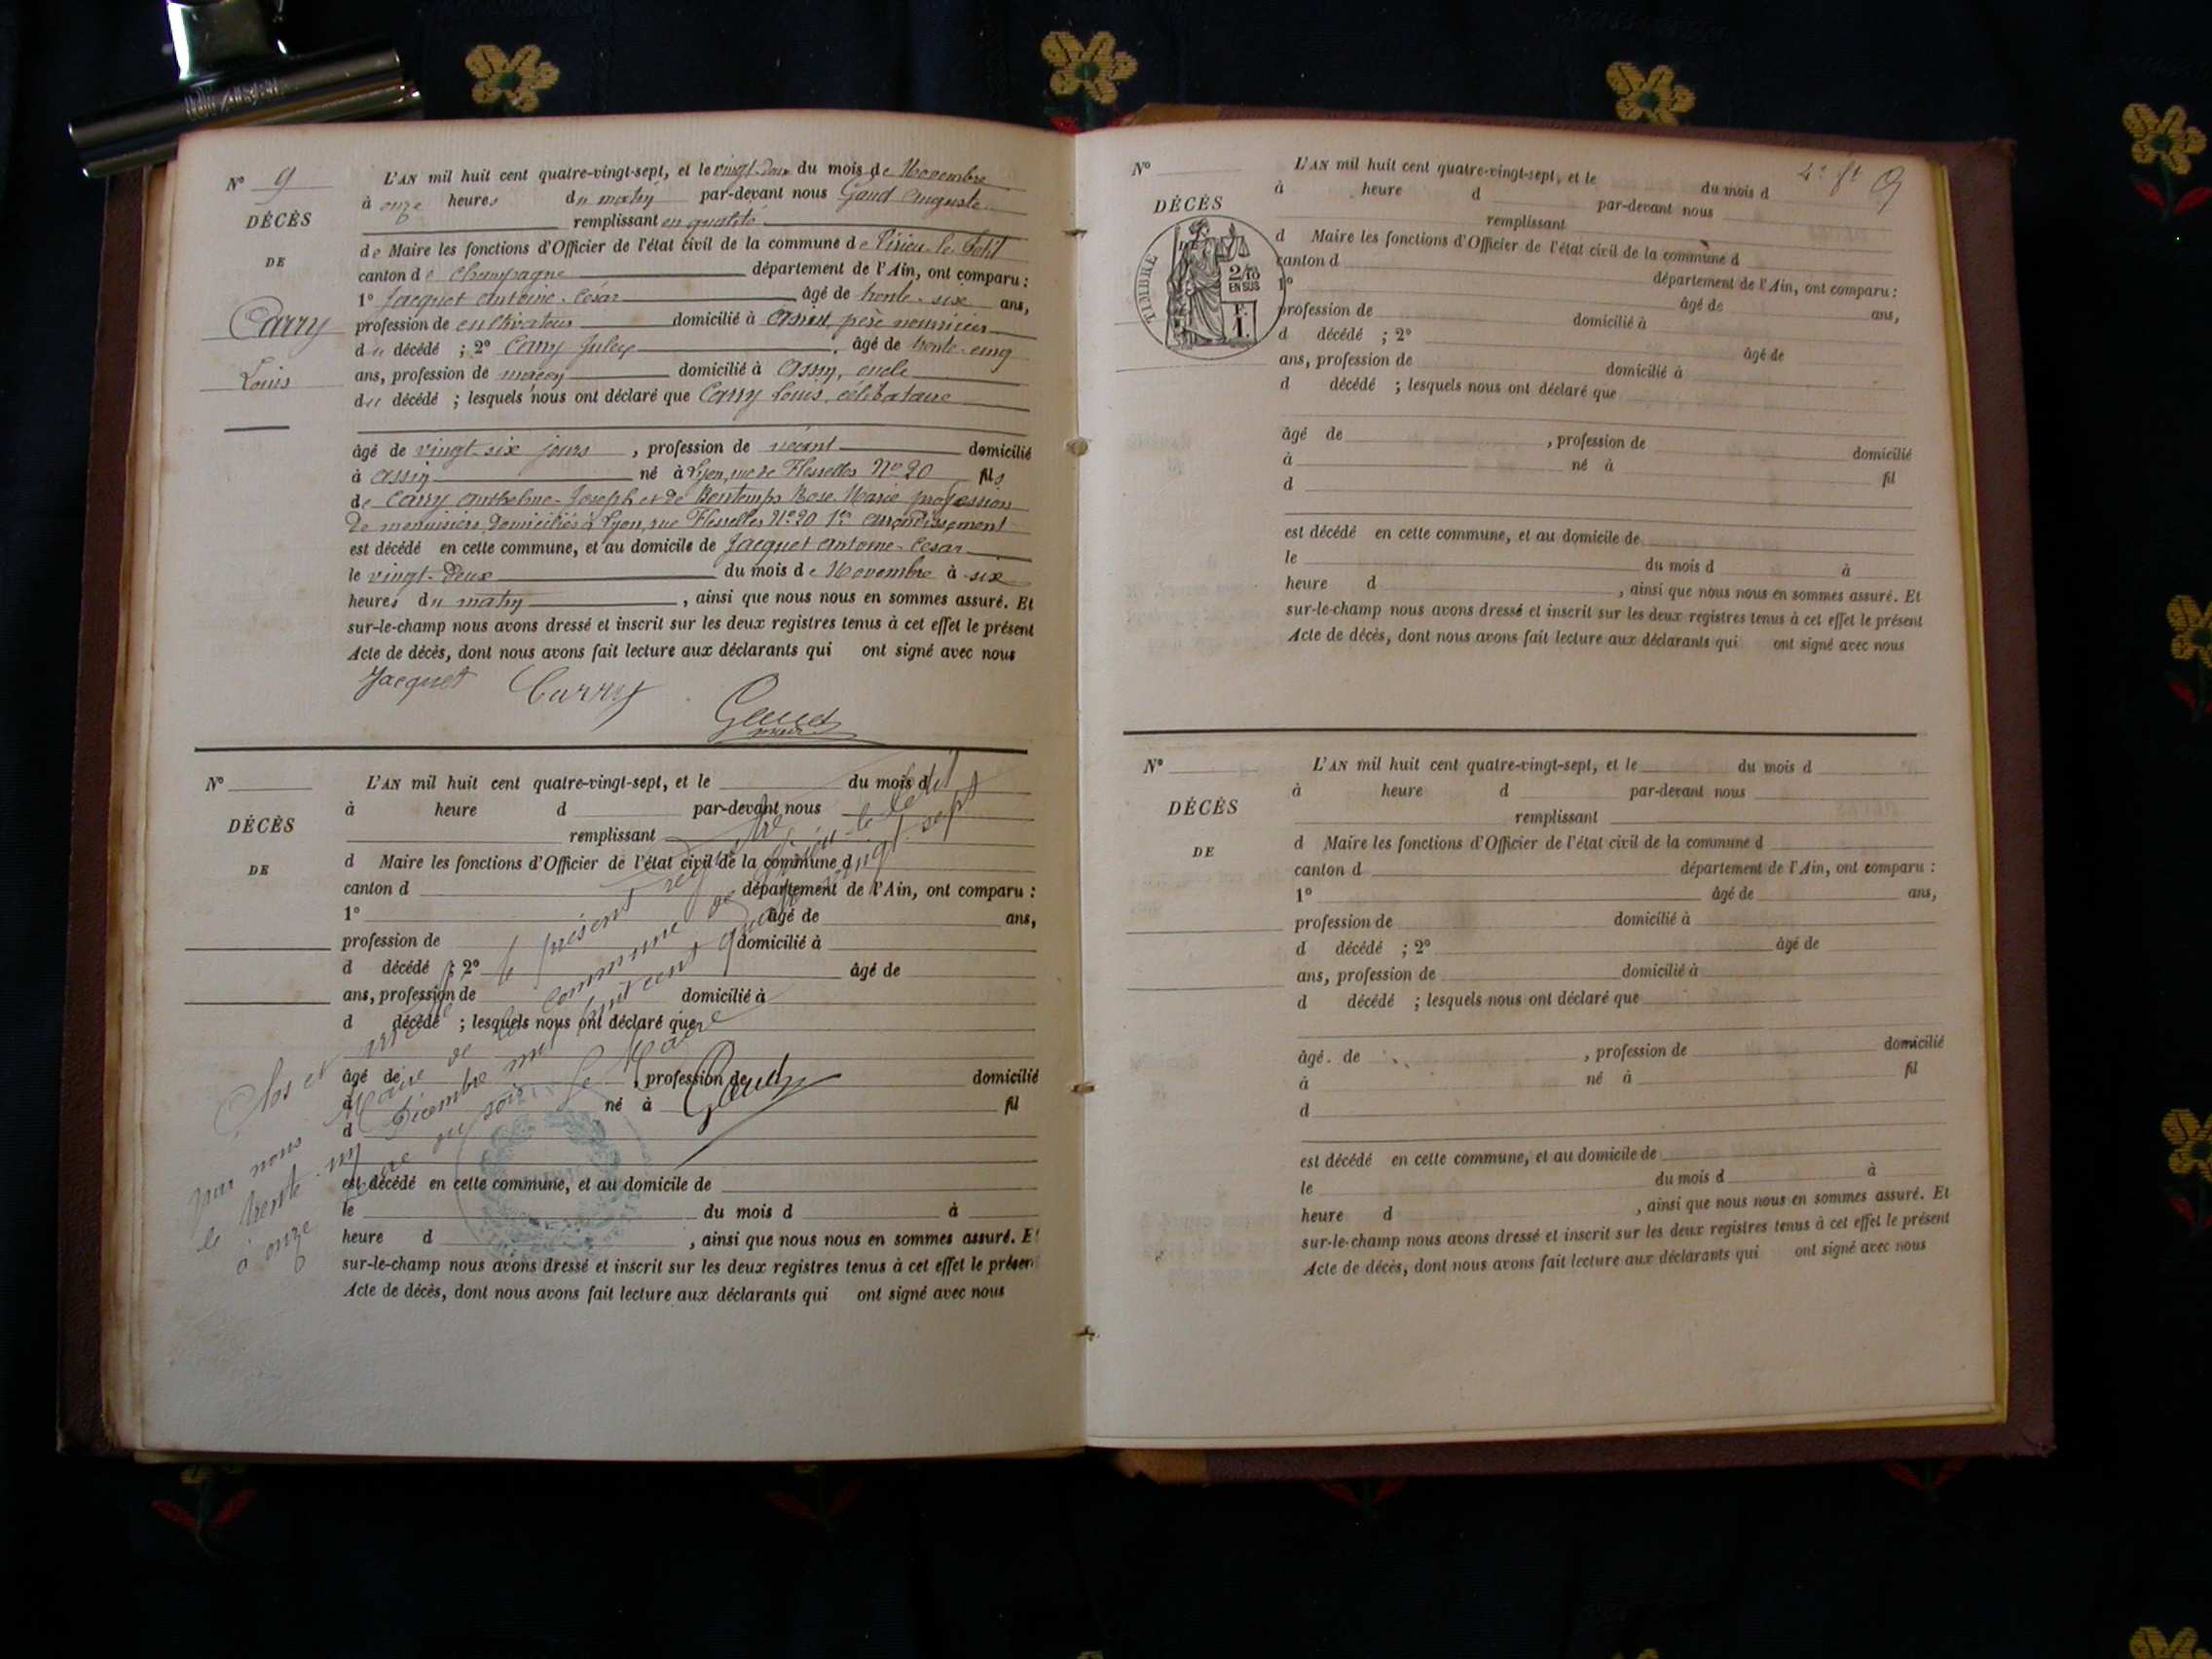 N° 9
DÉCÈS
DE
Carry
Louis
L'AN mil huit cent quatre-vingt-sept, et le vingt-deux du mois de Novembre
à onze heures du matin par-devant nous Gaud Auguste
remplissant en qualité
de Maire les fonctions d'Officier de l'état civil de la commune de Virieu-le-Petit
canton de Champagne département de l'Ain, ont comparu :
1° Jacquet Antoine-César âgé de trente-six ans,
profession de cultivateur domicilié à Assin, père nourricier
du décédé ; 2° Carry âgé de trente-cinq
ans, profession de maçon domicilié à Assin, oncle
du décédé ; lesquels nous ont déclaré que Carry Louis, célibataire
âgé de vingt-six jours , profession de néant domicilié
à Assin né à Lyon, rue de Flesselles N° 20 fils
de Carry Anthelme-Joseph et de Bontemps Rose-Marie profession
de menuisiers, domiciliés à Lyon, rue Flesselles N° 20 1er arrondissement
est décédé en cette commune, et au domicile de Jacquet Antoine-César
le vingt-deux du mois de Novembre à six
heures du matin , ainsi que nous nous en sommes assuré. Et
sur-le-champ nous avons dressé et inscrit sur les deux registres tenus à cet effet le présent
Acte de décès, dont nous avons fait lecture aux déclarants qui ont signé avec nous
Jacquet Carry Gaud
N°
DÉCÈS
DE
L'AN mil huit cent quatre-vingt-sept, et le du mois d
à heure d par-devant nous
remplissant
d Maire les fonctions d'Officier de l'état civil de la commune d
canton d département de l'Ain, ont comparu :
1° âgé de ans,
profession de domicilié à
d décédé ; 2° âgé de
ans, profession de domicilié à
d décédé ; lesquels nous ont déclaré que
âgé de , profession de domicilié
à né à fil
d
est décédé en cette commune, et au domicile de
le du mois d à
heure d , ainsi que nous nous en sommes assuré. Et
sur-le-champ nous avons dressé et inscrit sur les deux registres tenus à cet effet le présent
Acte de décès, dont nous avons fait lecture aux déclarants qui ont signé avec nous
Clos et arrêté le présent registre
par nous Maire de la commune de Virieu-le-Petit
le trente-un Décembre mil huit cent quatre vingt-sept
à onze heure du soir Le Maire
Gaud
N°
DÉCÈS
TIMBRE
2/10
EN SUS
F.
1.
9
L'AN mil huit cent quatre-vingt-sept, et le du mois d
à heure d par-devant nous
remplissant
d Maire les fonctions d'Officier de l'état civil de la commune d
canton d département de l'Ain, ont comparu :
1° âgé de ans,
profession de domicilié à
d décédé ; 2° âgé de
ans, profession de domicilié à
d décédé ; lesquels nous ont déclaré que
âgé de , profession de domicilié
à né à fil
d
est décédé en cette commune, et au domicile de
le du mois d à
heure d , ainsi que nous nous en sommes assuré. Et
sur-le-champ nous avons dressé et inscrit sur les deux registres tenus à cet effet le présent
Acte de décès, dont nous avons fait lecture aux déclarants qui ont signé avec nous
N°
DÉCÈS
DE
L'AN mil huit cent quatre-vingt-sept, et le du mois d
à heure d par-devant nous
remplissant
d Maire les fonctions d'Officier de l'état civil de la commune d
canton d département de l'Ain, ont comparu :
1° âgé de ans,
profession de domicilié à
d décédé ; 2° âgé de
ans, profession de domicilié à
d décédé ; lesquels nous ont déclaré que
âgé de , profession de domicilié
à né à fil
d
est décédé en cette commune, et au domicile de
le du mois d à
heure d , ainsi que nous nous en sommes assuré. Et
sur-le-champ nous avons dressé et inscrit sur les deux registres tenus à cet effet le présent
Acte de décès, dont nous avons fait lecture aux déclarants qui ont signé avec nous